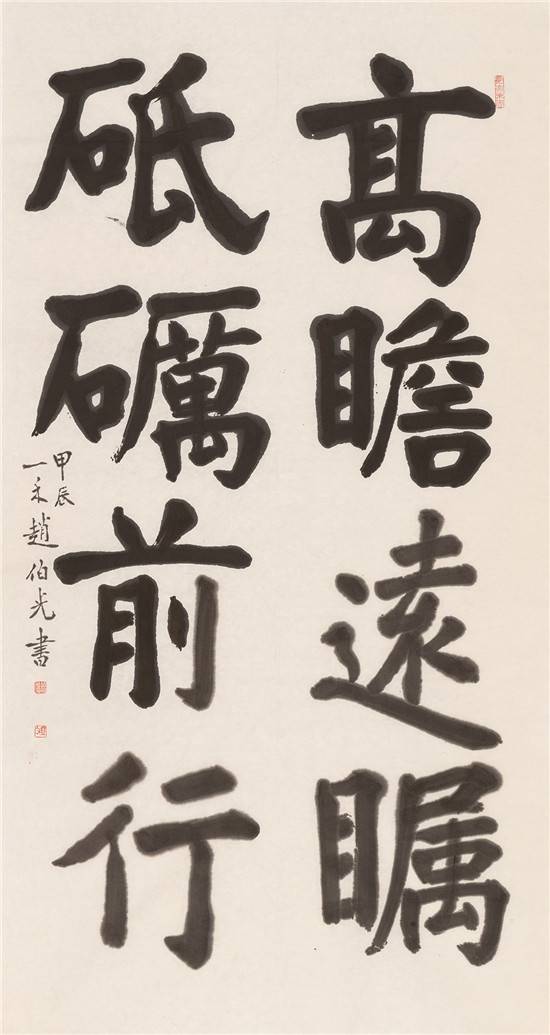 髙瞻遠瞩
砥礪前行
甲辰
一禾趙伯光書